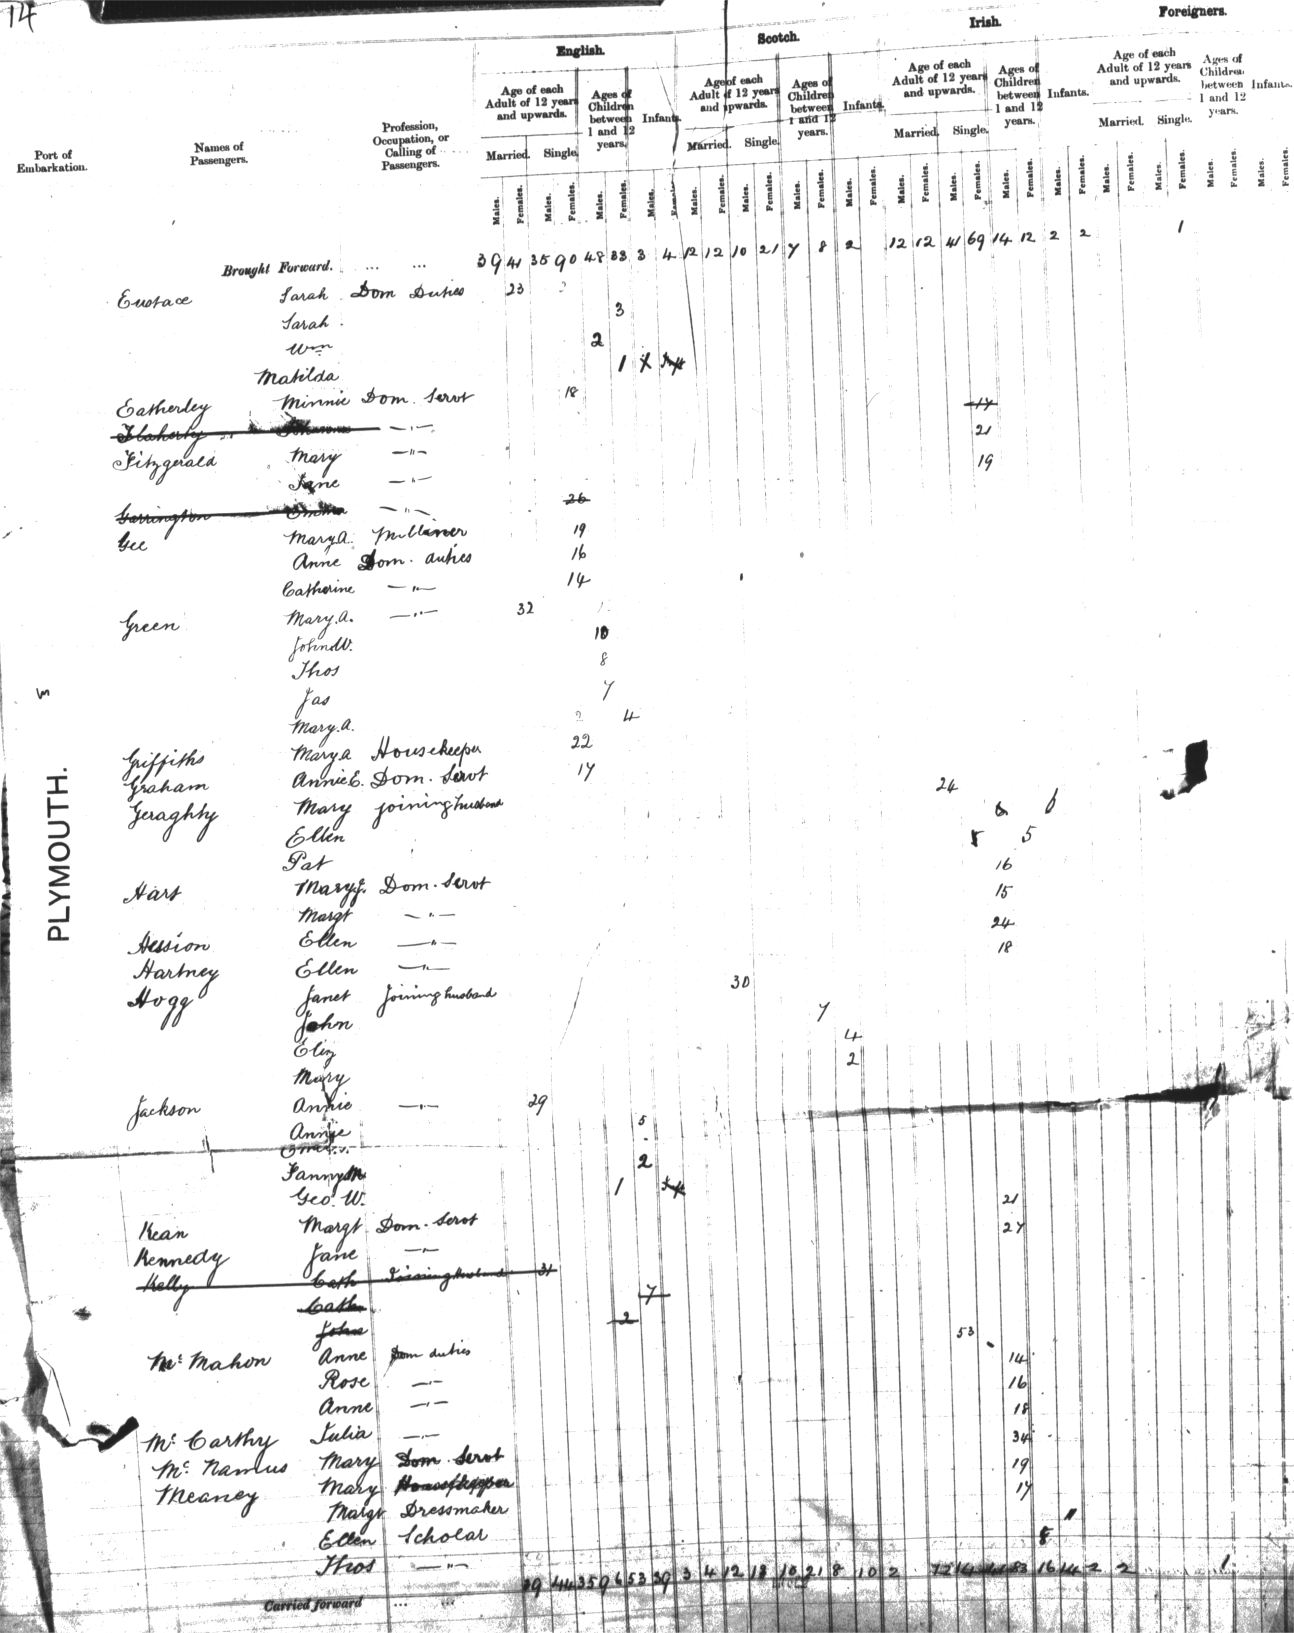 14
English. Scotch. Irish. Foreigners.
Port of Embarkation. Names of Passengers. Profession, Occupation, or Calling of Passengers.
Age of each Adult of 12 years and upwards. Ages of Children between 1 and 12 years. Infants. Age of each Adult of 12 years and upwards. Ages of Children between 1 and 12 years. Infants. Age of each Adult of 12 years and upwards. Ages of Children between 1 and 12 years. Infants. Age of each Adult of 12 years and upwards. Ages of Children between 1 and 12 years. Infants.
Married. Single. Married. Single. Married. Single. Married. Single.
Males. Females. Males. Females. Males. Females. Males. Females. Males. Females. Males. Females. Males. Females. Males. Females. Males. Females. Males. Females. Males. Females. Males. Females. Males. Females. Males. Females. Males. Females. Males. Females.
Brought Forward. ... ... 39 41 35 90 48 33 3 4 12 12 10 21 7 8 2 12 12 41 69 14 12 2 2 1
Eustace Sarah Dom Duties 23
Sarah 3
Wm 2
Matilda 1
Eatherley Minnie Dom. Servt 18
Flaherty —"— 17
Fitzgerald Mary —"— 21
Jane —"— 19
Garrington Emma —"— 26
Gee Mary A. Milliner 19
Anne Dom. duties 16
Catherine —"— 14
Green Mary. A. —"— 32
John W. 10
Thos 8
Jas 7
Mary. A. 4
Griffiths Mary A Housekeeper 22
Graham Annie E. Dom. Servt 17
Geraghty Mary joining husband 24
Ellen 6
Pat 5
Hart Mary J. Dom. Servt 16
Margt —"— 15
Hession Ellen —"— 24
Hartney Ellen —"— 18
Hogg Janet Joining husband 30
John 7
Eliz 4
Mary 2
Jackson Annie —"— 29
Annie 5
Fanny M 2
Geo. W. 1
Kean Margt Dom. Servt 21
Kennedy Jane —"— 27
Kelly Cath Joining Husband 31
Cath 7
John 2
Mc Mahon Anne Dom duties 53
Rose —"— 14
Anne —"— 16
Mc Carthy Julia —"— 18
Mc Namus Mary Dom. Servt 34
Meaney Mary Housekeeper 19
Margt Dressmaker 17
Ellen Scholar 11
Thos —"— 8
PLYMOUTH.
Carried forward ... ...